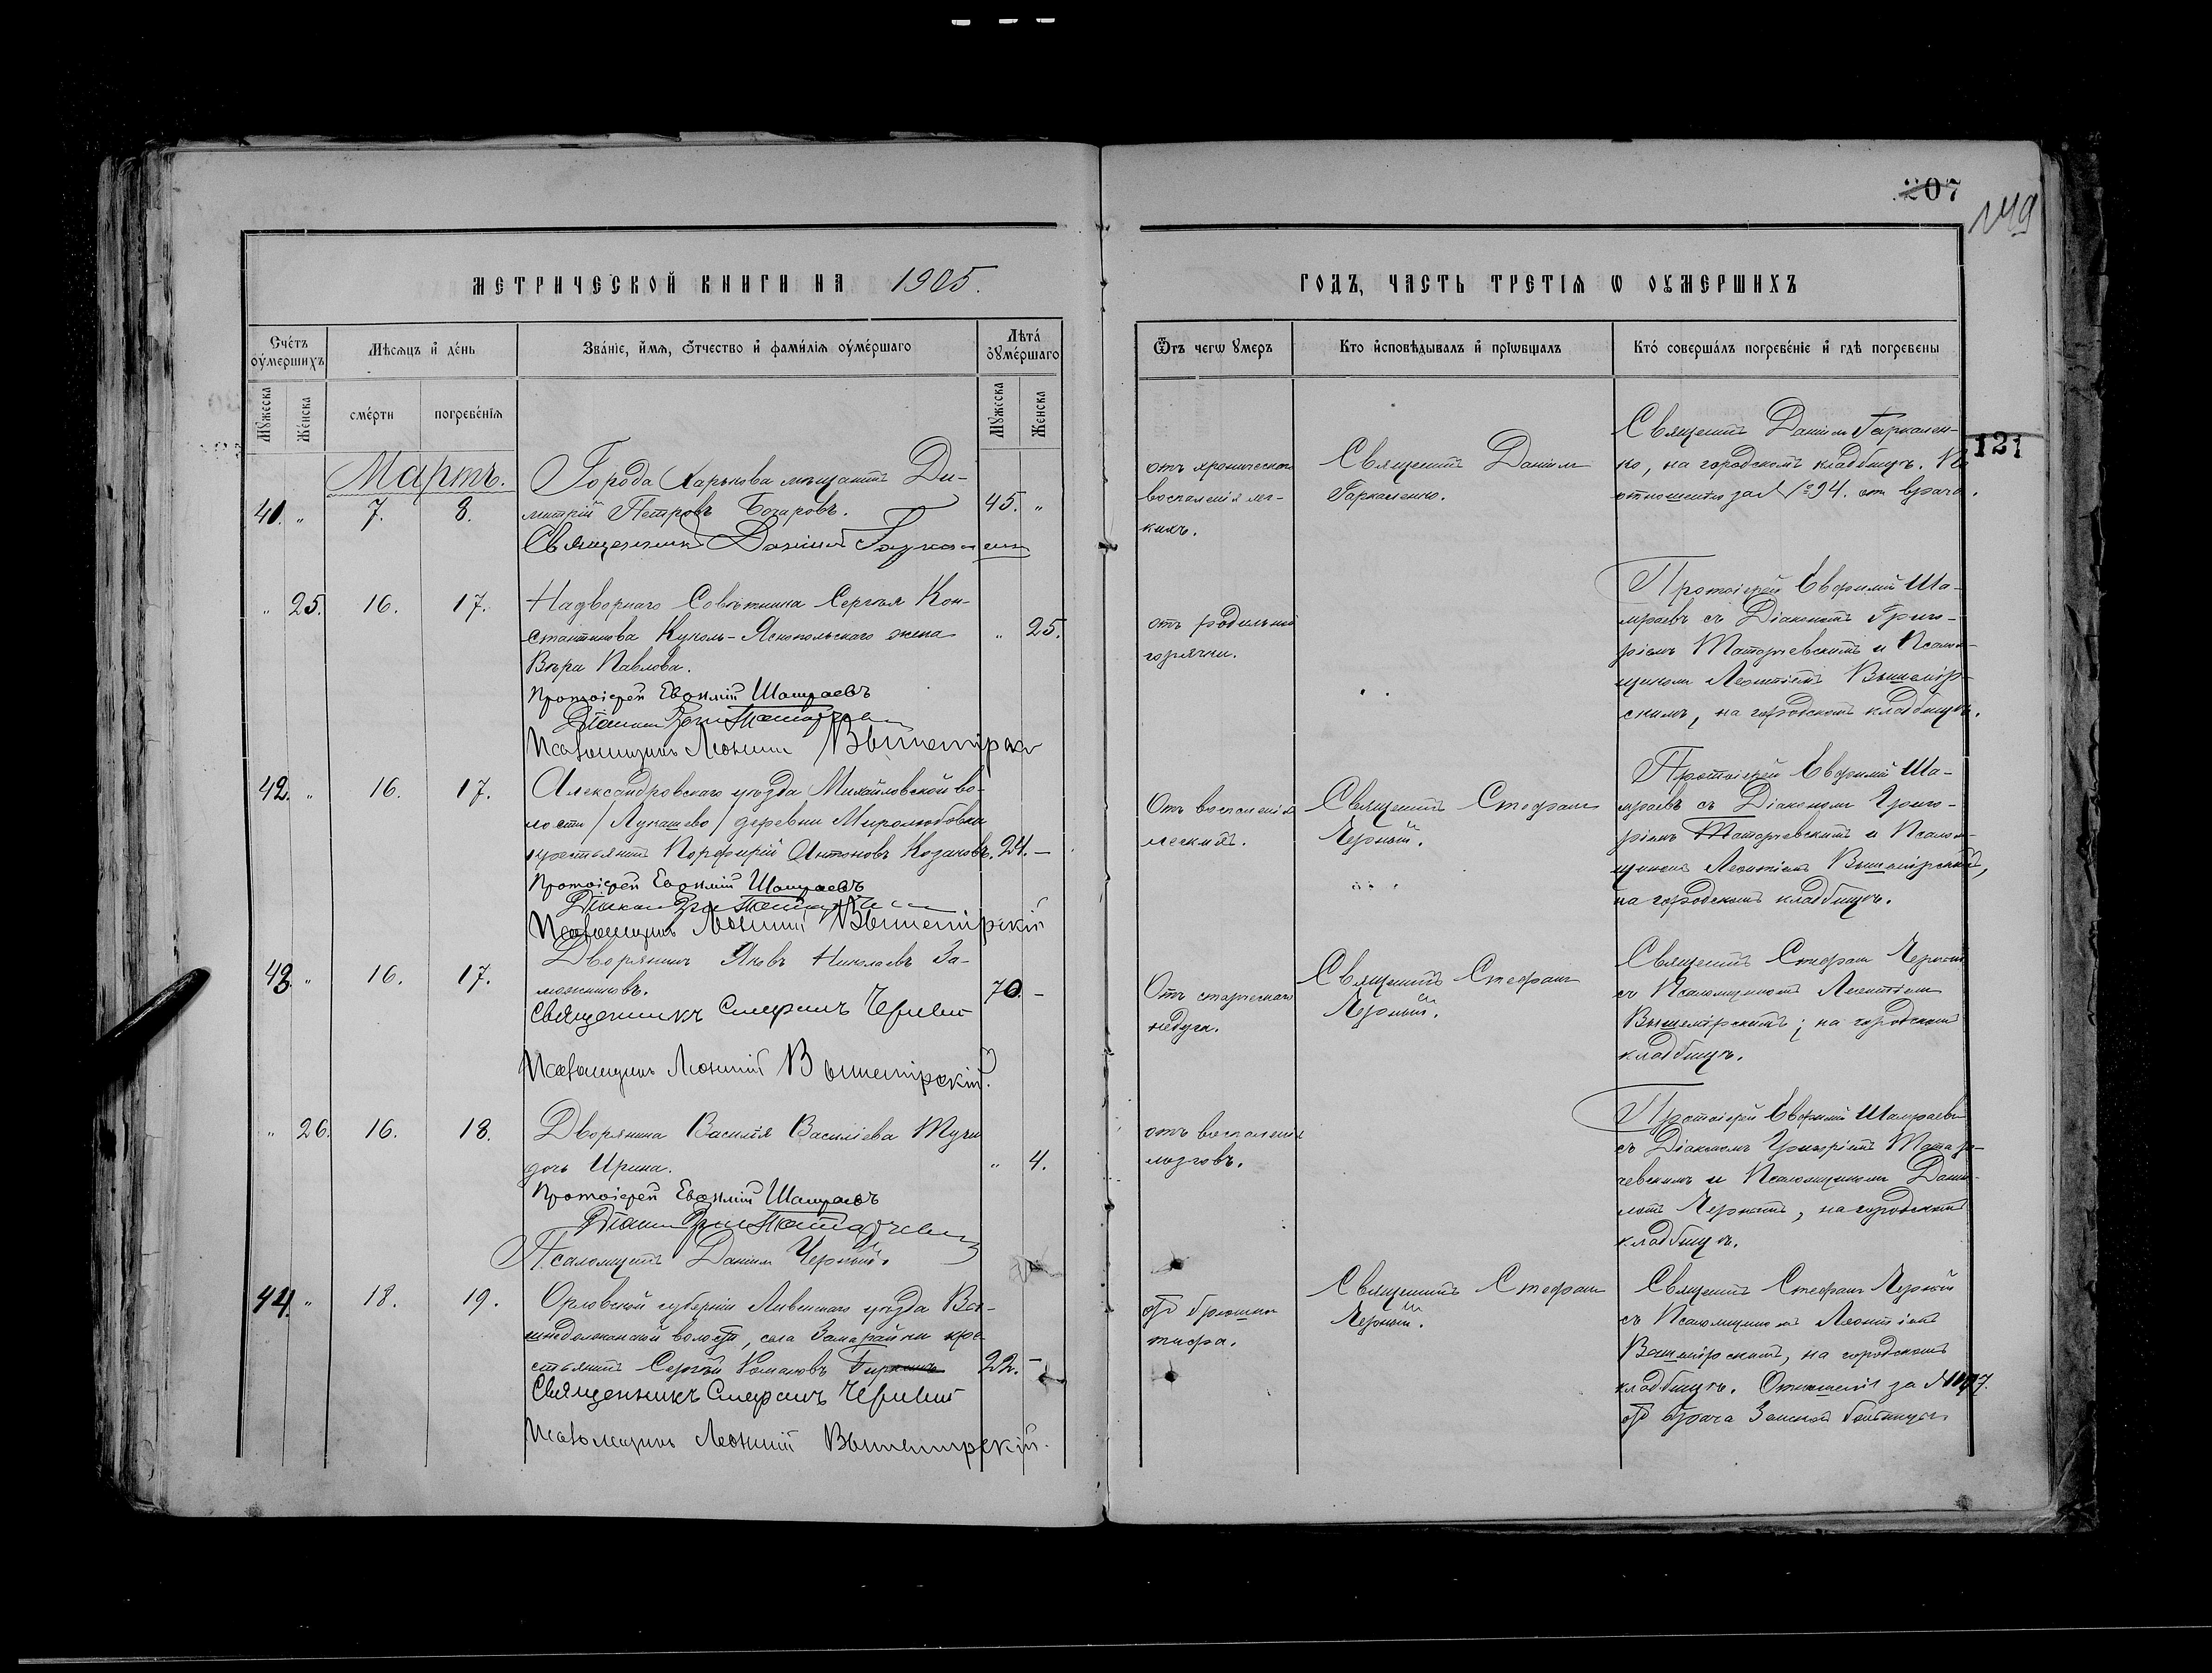 207
149
МЕТРИЧЕСКОЙ КНИГИ НА 1905.
ГОДЪ, ЧАСТЬ ТРЕТІѦ Ѡ ОУМЕРШИХЪ
Счетъ оумершихъ
Мѣсѧцъ и день
Званіе, имѧ, отчество и фамиліѧ оумершаго
Лѣта оумершаго
Ѿъ чегѡ умеръ
Кто исповѣдывалъ и пріѡбщалъ
Кто совершалъ погребеніе и гдѣ погребены
Мужеска
Женска
смерти
погребеніѧ
Мужеска
Женска
121
Мартъ.
41. " 7. 8.
Города Харькова мѣщанинъ Ди-
митрій Петровъ Бочаровъ.
45. "
Священникъ Даніилъ
отъ хроническаго
воспаленія лег-
кихъ.
Священникъ Даніилъ
Гаркаленко.
Священникъ Даніилъ Гаркален-
ко, на городскомъ кладбищѣ. По
отношенію за № 94. отъ врача.
" 25. 16. 17.
Надворнаго Совѣтника Сергѣя Кон-
стантинова Куколь-Яснопольскаго жена
Вѣра Павлова.
" 25.
Протоіерей Евфимій Шамраевъ
Діаконъ
Псаломщикъ Леонтій Вышемірскій
отъ родильной
горячки.
Протоіерей Евфимій Ша-
мраевъ съ Діакономъ Григо-
ріемъ Татарчевскимъ и Псалом-
щикомъ Леонтіемъ Вышемір-
скимъ, на городскомъ кладбищѣ.
42. " 16. 17.
Александровскаго уѣзда Михайловской во-
лости /Лукашево/ деревни Миролюбовки
крестьянинъ Порфирій Антоновъ Козаковъ. 24. —
Протоіерей Евфимій Шамраевъ
Діаконъ
Псаломщикъ Леонтій Вышемірскій
Отъ воспаленія
легкихъ.
Священникъ Стефанъ
Черный.
Протоіерей Евфимій Ша-
мраевъ съ Діакономъ Григо-
ріемъ Татарчевскимъ и Псалом-
щикомъ Леонтіемъ Вышемірскимъ,
на городскомъ кладбищѣ.
43. " 16. 17.
Дворянинъ Яковъ Николаевъ За-
можниковъ.
70. —
Священникъ Стефанъ Черный
Псаломщикъ Леонтій Вышемірскій.
Отъ старческаго
недуга.
Священникъ Стефанъ
Черный.
Священникъ Стефанъ Черный
съ Псаломщикомъ Леонтіемъ
Вышемірскимъ; на городскомъ
кладбищѣ.
" 26. 16. 18.
Дворянина Василія Василіева
дочь Ирина.
" 4.
Протоіерей Евфимій Шамраевъ
Діаконъ
Псаломщикъ Даніилъ Черный.
отъ воспаленія
мозговъ.
Протоіерей Евфимій Шамраевъ
съ Діакономъ Григоріемъ Татар-
чевскимъ и Псаломщикомъ Дані-
иломъ Чернымъ, на городскомъ
кладбищѣ.
44. " 18. 19.
Орловской губерніи Ливенскаго уѣзда
волости, села Замарайки кре-
стьянинъ Сергѣй Романовъ 22. —
Священникъ Стефанъ Черный
Псаломщикъ Леонтій Вышемірскій.
отъ брюшн.
тифа.
Священникъ Стефанъ
Черный.
Священникъ Стефанъ Черный
съ Псаломщикомъ Леонтіемъ
Вышемірскимъ, на городскомъ
кладбищѣ. Отношеніе за №
отъ врача Земской больницы